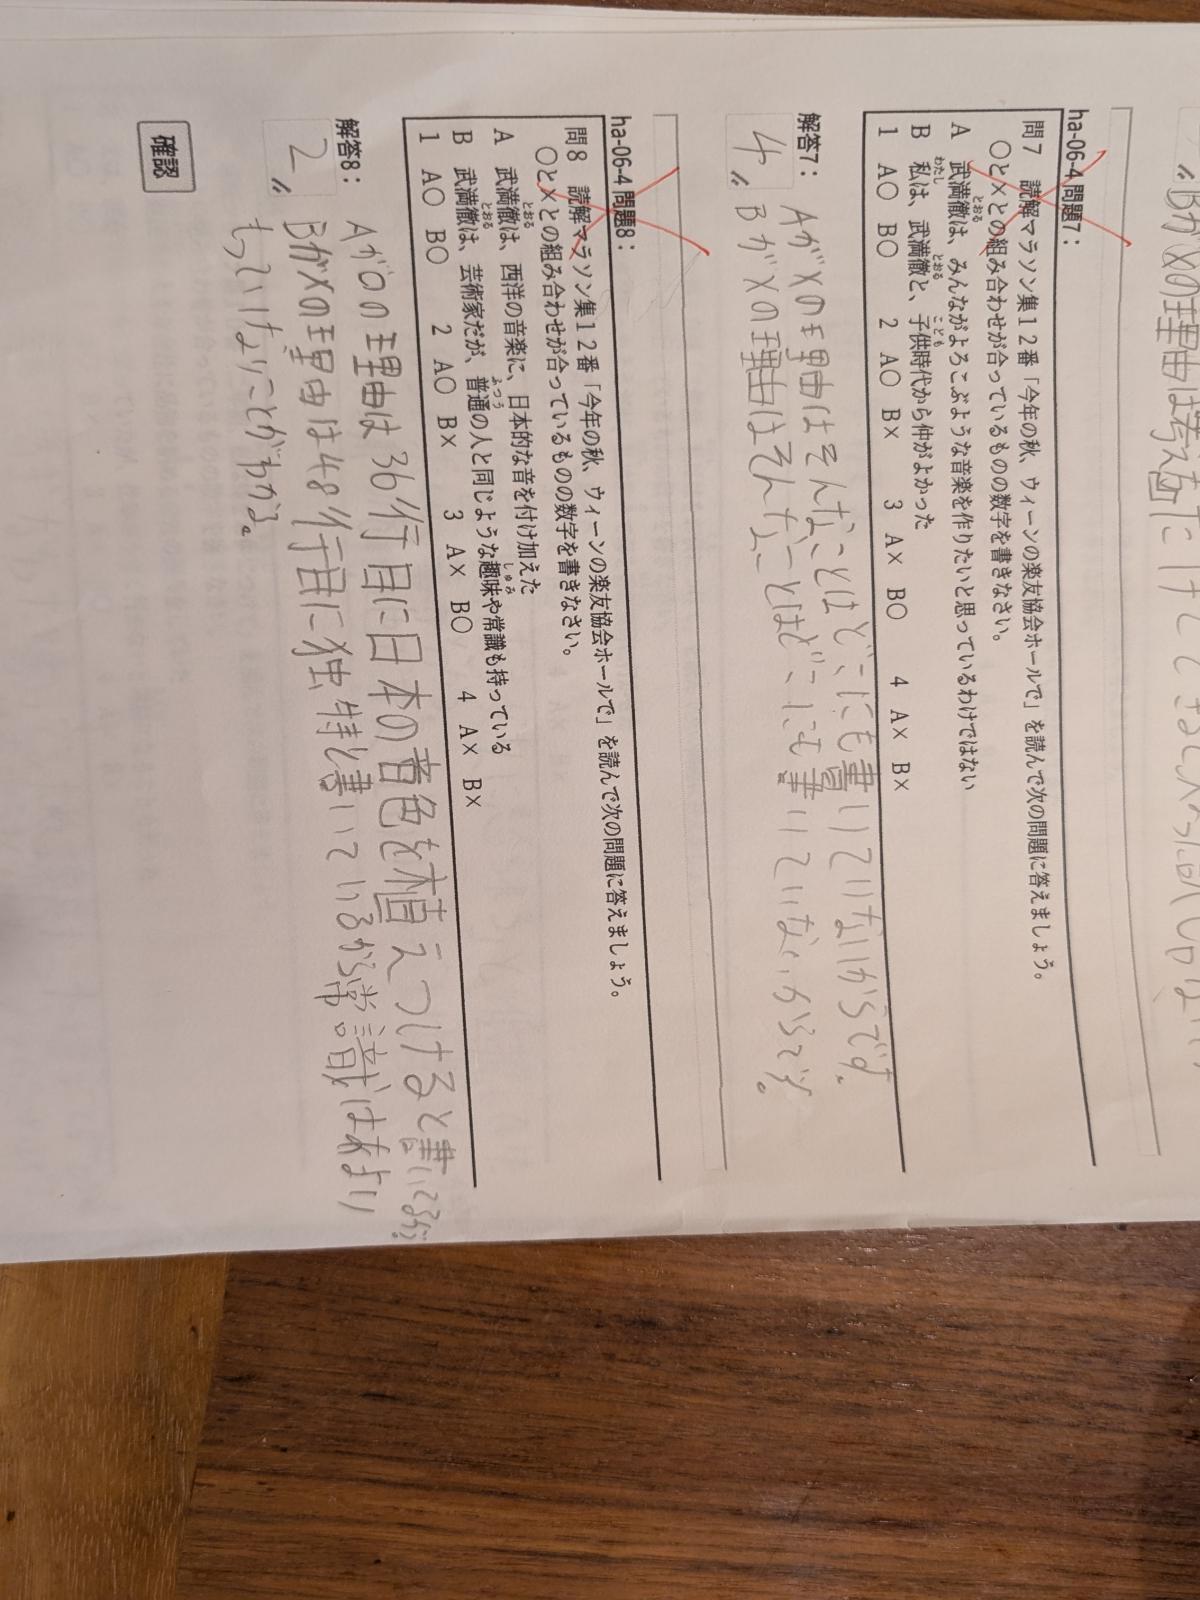 Bが×の理由は考え直
ha-06-4 問題7：
問7 読解マラソン集12番「今年の秋、ウィーンの楽友協会ホールで」を読んで次の問題に答えましょう。
○と×との組み合わせが合っているものの数字を書きなさい。
A 武満徹は、みんながよろこぶような音楽を作りたいと思っているわけではない
とおる
B 私は、武満徹と、子供時代から仲がよかった
わたし とおる こども
1 A○ B○ 2 A○ B× 3 A× B○ 4 A× B×
解答7：
4〃
Aが×の理由はそんなことはどこにも書いていないからです。
Bが×の理由はそんなことはどこにも書いていないからです。
ha-06-4 問題8：
問8 読解マラソン集12番「今年の秋、ウィーンの楽友協会ホールで」を読んで次の問題に答えましょう。
○と×との組み合わせが合っているものの数字を書きなさい。
A 武満徹は、西洋の音楽に、日本的な音を付け加えた
とおる
B 武満徹は、芸術家だが、普通の人と同じような趣味や常識も持っている
とおる ふつう しゅみ
1 A○ B○ 2 A○ B× 3 A× B○ 4 A× B×
解答8：
2〃
Aが○の理由は36行目に日本の音色を植えつけると書いてる
Bが×の理由は48行目に独特と書いているから常識はあまり
もっていないことがわかる。
確認